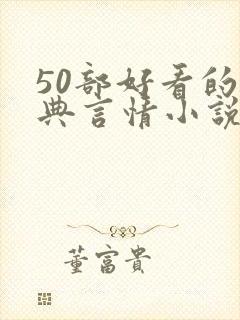 50部好看的
典言情小說
董富貴